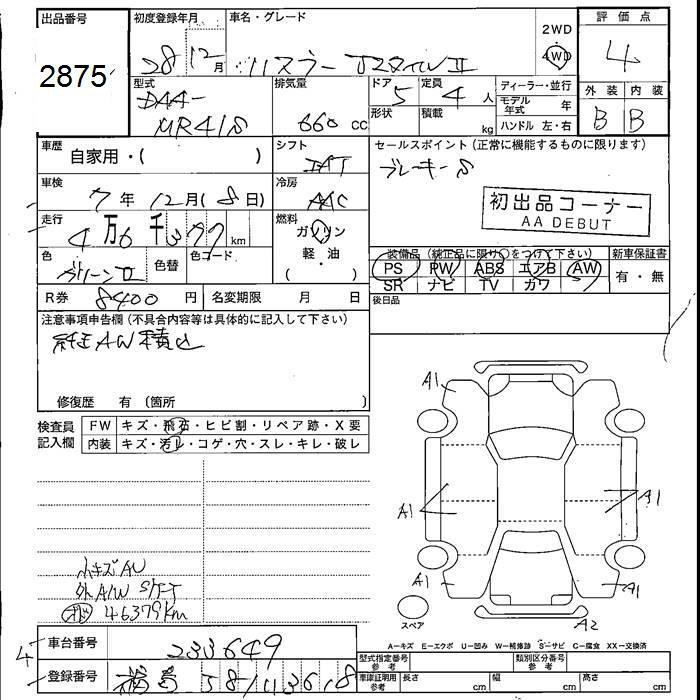 出品番号
2875
初度登録年月
28 12月
車名・グレード
ハスラー Jスタイル Ⅱ
2WD
4WD
評価点
4
外装 内装
B B
型式
DAA-
MR41S
排気量
660 cc
ドア 5
形状
定員 4 人
積載 kg
ディーラー・並行
モデル年式 年
ハンドル 左・右
車歴
自家用・( )
シフト
IAT
セールスポイント (正常に機能するものに限ります)
ブレーキS
初出品コーナー
AA DEBUT
車検
7年 12月(8日)
冷房
AAC
走行
4万6千377km
燃料
ガソリン
軽・油
( )
色
グリーンⅡ
色替
色コード
装備品 (純正品に限り○をつけて下さい)
PS PW ABS エアB AW
SR ナビ TV カワ
新車保証書
有・無
R券 8400円
名変期限 月 日
後日品
注意事項申告欄 (不具合内容等は具体的に記入して下さい)
純正AW積込
修復歴 有 〔箇所 〕
検査員記入欄
FW キズ・飛石・ヒビ割・リペア跡・X要
内装 キズ・汚れ・コゲ・穴・スレ・キレ・破レ
小キズAU
外A/W S/T-T
46379km
A1
A1
A1
A1
A1
A2
スペア
A−キズ E−エクボ U−凹み W−補修跡 S−サビ C−腐食 XX−交換済
4
車台番号
233649
登録番号
581
型式指定番号 参考
類別区分番号 参考
車庫証明用 参考
長さ cm
幅 cm
高さ cm